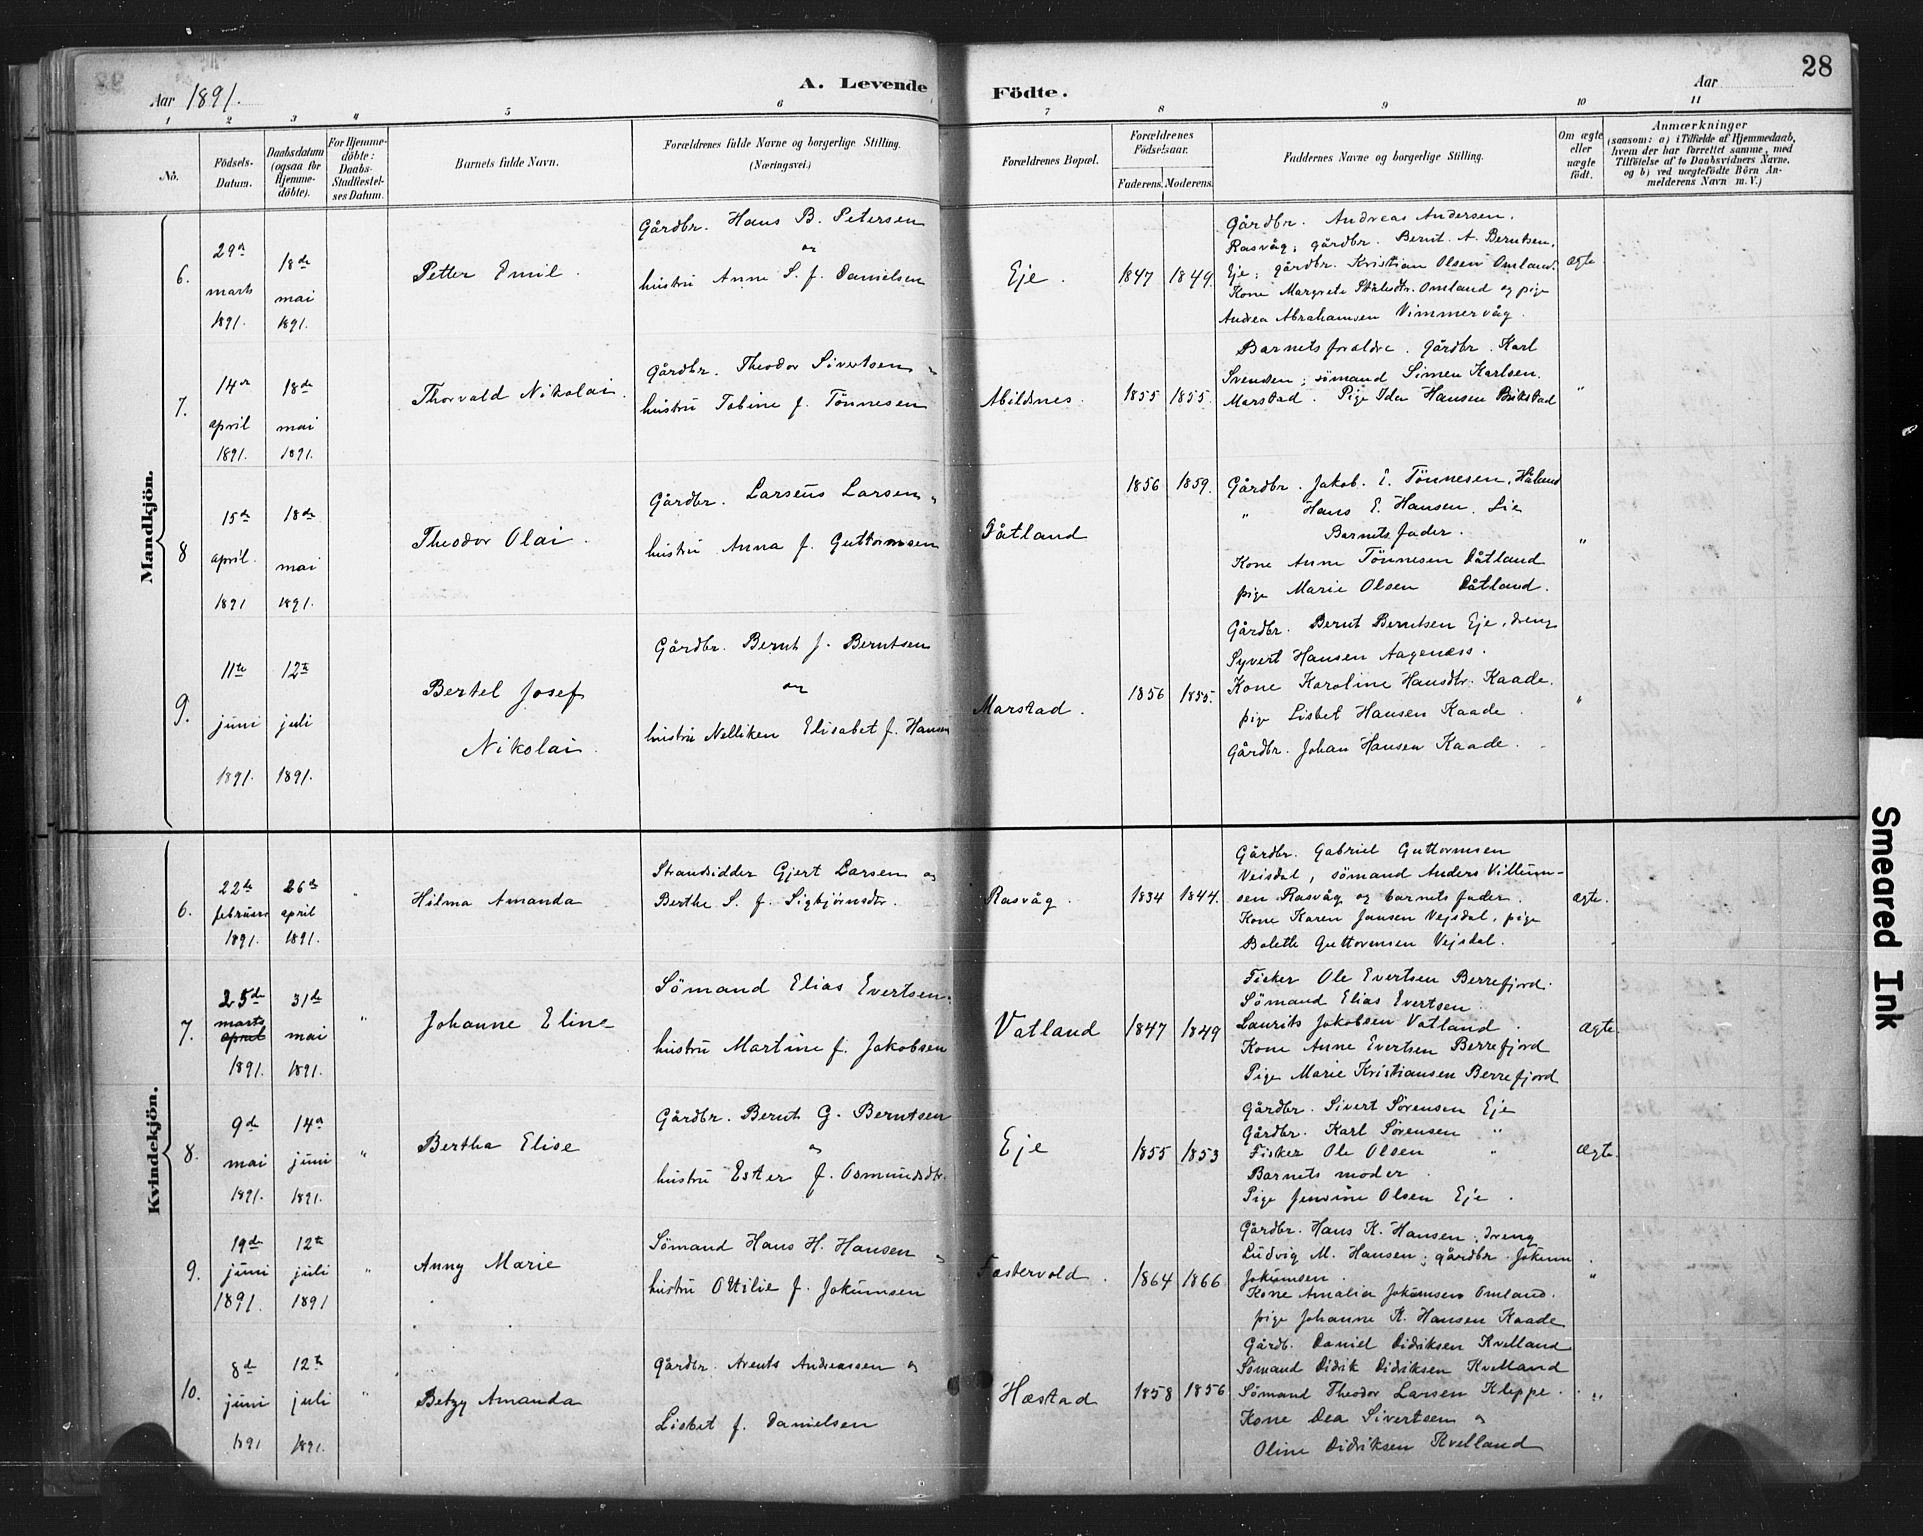 28
Aar 1891.
A. Levende Födte.
Aar
1 2 3 4 5 6 7 8 9 10 11
No.
Födsels-Datum.
Daabsdatum (ogsaa for Hjemme-döbte).
For Hjemme-döbte: Daabs-Stadfæstel-ses Datum.
Barnets fulde Navn.
Forældrenes fulde Navne og borgerlige Stilling.
(Næringsvei.)
Forældrenes Bopæl.
Forældrenes Födselsaar.
Faderens. Moderens.
Faddernes Navne og borgerlige Stilling.
Om ægte eller uægte födt.
Anmærkninger
(saasom: a) i Tilfælde af Hjemmedaab,
hvem der har forrettet samme, med
Tilföielse af to Daabsvidners Navne,
og b) ved uægtefödte Börn An-
melderens Navn m. V.)
Mandkjön.
6.
29de marts 1891.
18de mai 1891.
Petter Emil.
Gårdbr. Hans B. Petersen
og
hustru Anne S. f. Danielsen
Eje.
1847 1849.
Gårdbr. Andreas Andersen.
Rasvåg; gårdbr. Bernt A. Berntsen,
Eje; gårdbr. Kristian Olsen Omland.
Kone Margrete Omland og pige
Andrea Abrahamsen Vimmervåg.
ægte
7.
14de april 1891.
18de mai 1891.
Thorvald Nikolai.
Gårdbr. Theodor Sivertsen
hustru Tobine f. Tönnesen
Abildsnes.
1855 1855.
Barnets forældre. gårdbr. Karl
Svendsen; sömand Simen Karlsen.
Marstad. Pige Ida Hansen Birkstad
"
8
15de april. 1891
18de mai 1891.
Theodor Olai.
Gårdbr. Larseus Larsen
hustru Anna f. Guttormsen
Dåtland
1856 1859.
Gårdbr. Jakob. E. Tönnesen, Håland
" Hans E. Hansen. Lie
Barnets fader.
Kone Anne Tönnesen Dåtland
pige Marie Olsen Dåtland.
"
9.
11te juni 1891.
12te juli 1891.
Bertel Josef
Nikolai.
Gårdbr. Bernt J. Berntsen
og
hustru Nelliken Elisabet f. Hansen
Marstad.
1856 1855.
Gårdbr. Bernt Berntsen Eje, dreng
Syvert Hansen Aagenæss.
Kone Karoline Hansdtr. Kaade.
pige Lisbet Hansen Kaade.
Gårdbr. Johan Hansen Kaade.
"
Kvindekjön.
6.
22de februar 1891.
26de april 1891.
"
Hilma Amanda
Strandsidder Gjert Larsen og
Berthe S. f. Sigbjörnsdtr.
Rasvåg.
1834 1844.
Gårdbr. Gabriel Guttormsen
Veisdal, sömand Anders Villum-
sen Rasvåg og barnets fader.
Kone Karen Jansen Vejsdal, pige
Bolette Guttormsen Vejsdal.
ægte.
7.
25de marts april 1891.
31de mai 1891.
"
Johanne Eline
Sömand Elias Evertsen
hustru Martine f. Jakobsen
Vatland
1847 1849
Fisker Ole Evertsen Berrefjord.
Sömand Elias Evertsen
Laurits Jakobsen Vatland.
Kone Anne Evertsen Berrefjord
Pige Marie Kristiansen Berrefjord
ægte.
8.
9de mai 1891.
14de juni 1891.
"
Bertha Elise
Gårdbr. Bernt G. Berntsen
og
hustru Ester f. Osmundsdtr.
Eje
1855 1853
Gårdbr. Sivert Sörensen Eje
Gårdbr. Karl Sörensen "
Fisker Ole Olsen "
Barnets moder.
Pige Jensine Olsen Eje.
ægte.
9.
19de juni 1891.
12te juli 1891
"
Anny Marie
Sömand Hans H. Hansen
hustru Ottilie f. Jokumsen
Fastervold.
1864 1866
Gårdbr. Hans K. Hansen; dreng
Ludvig M. Hansen; gårdbr. Jokum
Jokumsen.
Kone Amalia Jokumsen Omland.
pige Johanne K. Hansen Kaade
"
10.
8de juni 1891
12te juli 1891.
"
Betzy Amanda
Gårdbr. Arents Andreassen og
Lisbet f. Danielsen
Hæstad
1858 1856
Gårdb. Daniel Didriksen Kvelland
Sömand Didrik Didriksen Kvelland
Sömand Theodor Larsen Kleppe.
Kone Dea Sivertsen og
Oline Didriksen Kvelland
"
Smeared Ink